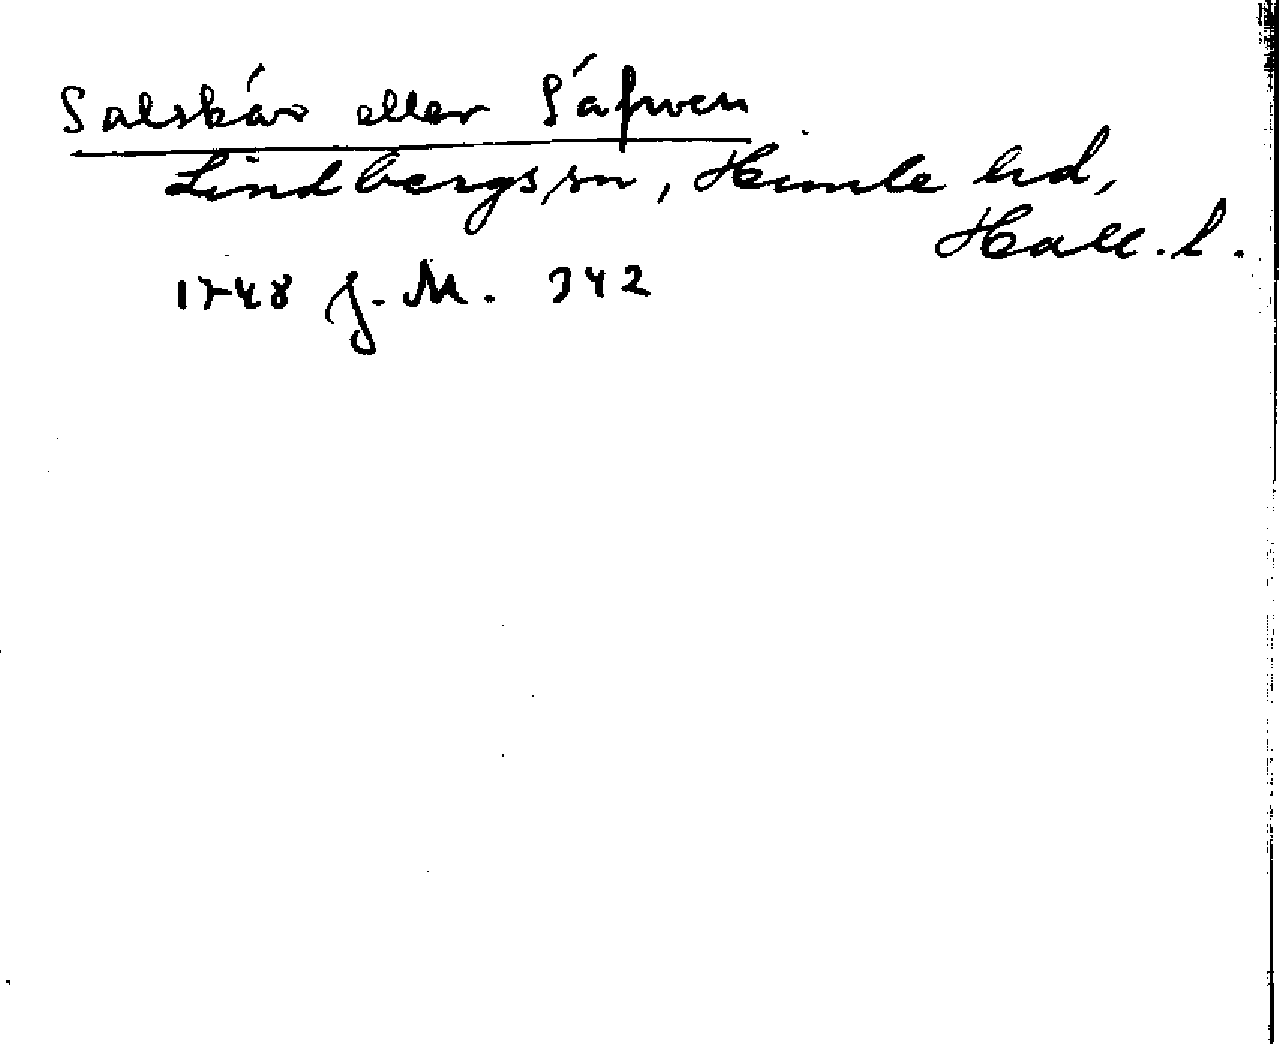 Salskär eller Säfwen
Lindbergs sn, Himle hd,
Hall. l.
1748 J. M. 342